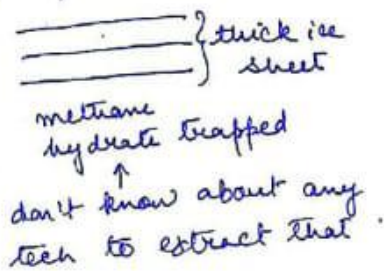 thick ice
sheet
methane
hydrate trapped
don't know about any
tech to extract that.